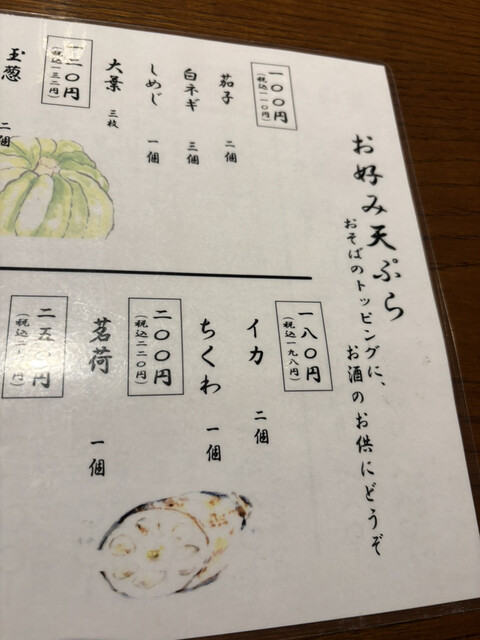 お好み天ぷら
おそばのトッピングに、
お酒のお供にどうぞ
一〇〇円
(税込一一〇円)
茄子 二個
白ネギ 三個
しめじ 一個
大葉 三枚
一二〇円
(税込一三二円)
玉葱 二個
一八〇円
(税込一九八円)
イカ 二個
ちくわ 一個
二〇〇円
(税込二二〇円)
茗荷 一個
二五〇円